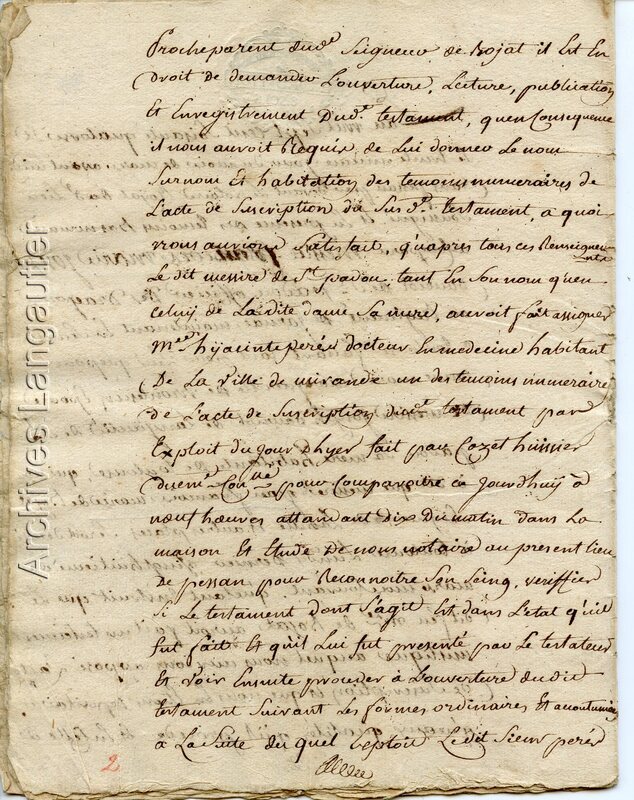 Proche parent dud.t Seigneur de Rojat il Est En
Droit de demander L'ouverture, Lecture, publication
Et Enregistrement Dud.t testament, qu'en Consequence
il nous auroit Requis de Lui donner Le nom
Surnom Et habitation des temoins numeraires de
L'acte de Suscription du Sus d.t testament, a quoi
nous aurions Satisfait, qu'apres tous ces Renseignements
Le dit messire de St. padou tant En Son nom qu'en
Celuy de La dite dame Sa mere, auroit fait assigner
hijacinte perés docteur En medecine habitant
De La Ville de mirande un des temoins numeraire
de L'acte de Suscription dud.t testament par
Exploit du jour d'hyer fait par Cazet huissier
pour Comparoitre ce jourdhuij a
neuf heures attandant dix Du matin dans La
maison Et Etude De nous notaire au present lieu
De pessan pour Reconnoitre Son Seing, veriffier
Si Le testament dont S'agit Est dans L'etat qu'il
fut fait Et qu'il Lui fut presenté par Le testateur
Et voir Ensuite proceder a L'ouverture du dit
testament Suivant Les formes ordinaires Et accoutumées
a La Suite du quel Exploit Le dit Sieur perés
2
Archives Langautier